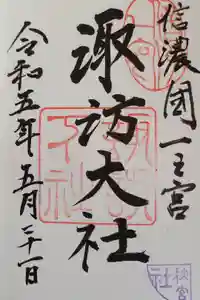 信濃國一之宮
諏訪大社
令和五年五月二十一日